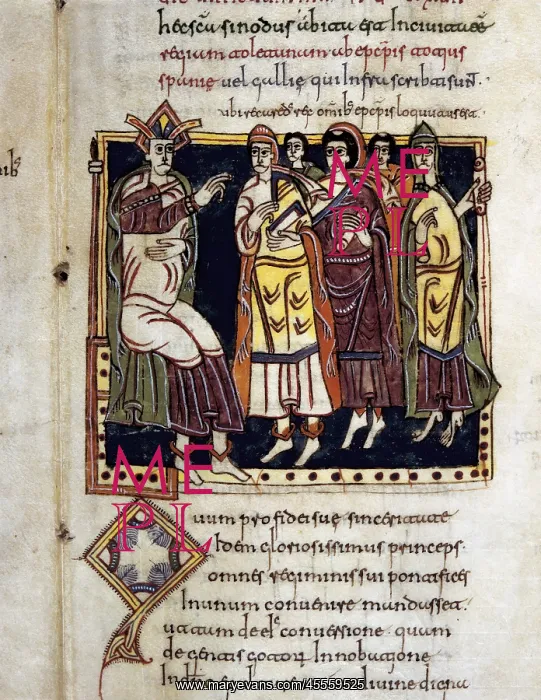 hec scā sinodus abita est In civitate
regium toletanum ab epcpis totius
spanie vel gallie qui Infra scribti sunt.
ubi recaredꝰ rex omībꝫ epcpis loquutus est.
ME
PL
ME
PL
uum pro fidei sue sinceritate
Idem gloriosissimus princeps.
omnes regiminis sui pontifices
In unum convenire mandasset.
ut tam de eiꝰ conversione quam
de gentis gotoꝝ Innobatione
divine
www.maryevans.com/45559525